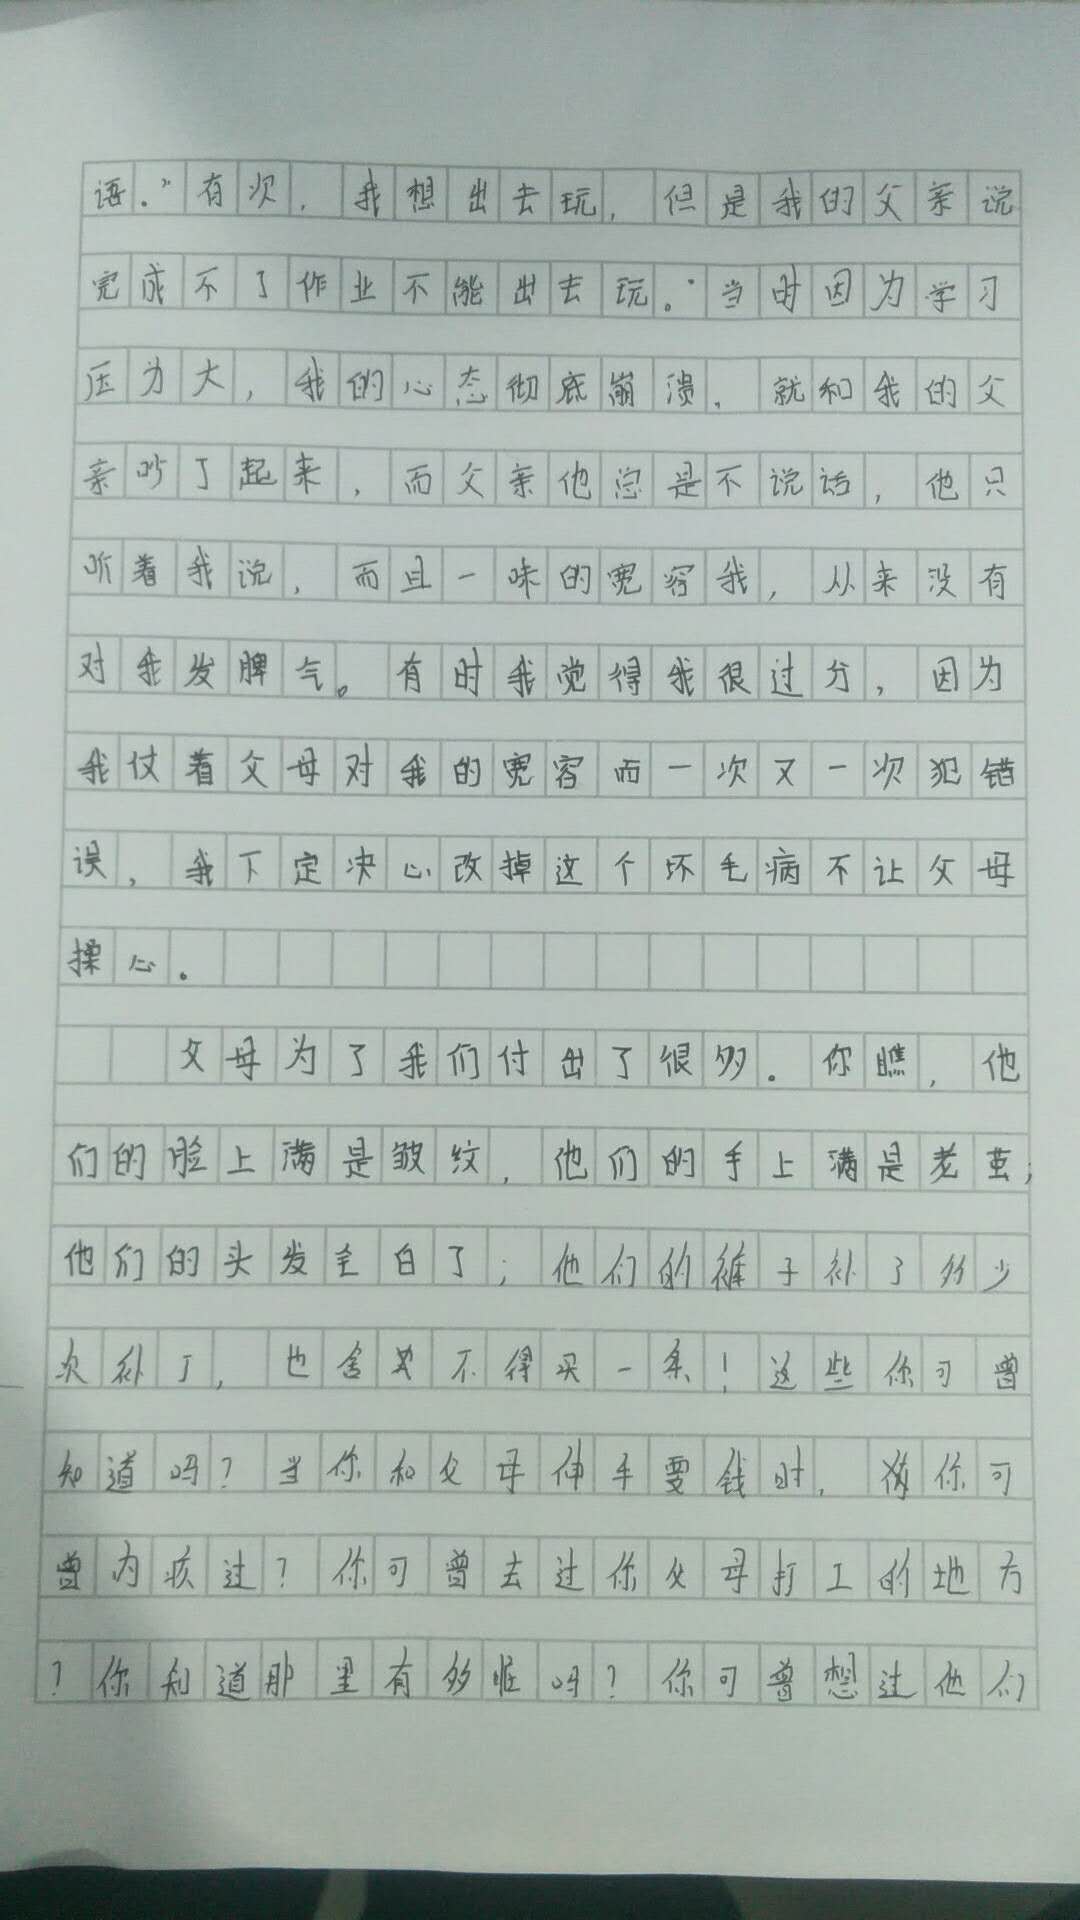 语。”有次，我想出去玩，但是我的父亲说
完成不了作业不能出去玩。”当时因为学习
压力大，我的心态彻底崩溃，就和我的父
亲吵了起来，而父亲他总是不说话，他只
听着我说，而且一味的宽容我，从来没有
对我发脾气。有时我觉得我很过分，因为
我仗着父母对我的宽容而一次又一次犯错
误，我下定决心改掉这个坏毛病不让父母
操心。
父母为了我们付出了很多。你瞧，他
们的脸上满是皱纹，他们的手上满是老茧；
他们的头发全白了；他们的裤子补了多少
次补丁，也舍不得买一条！这些你可曾
知道吗？当你和父母伸手要钱时，你可
曾内疚过？你可曾去过你父母打工的地方
？你知道那里有多脏吗？你可曾想过他们